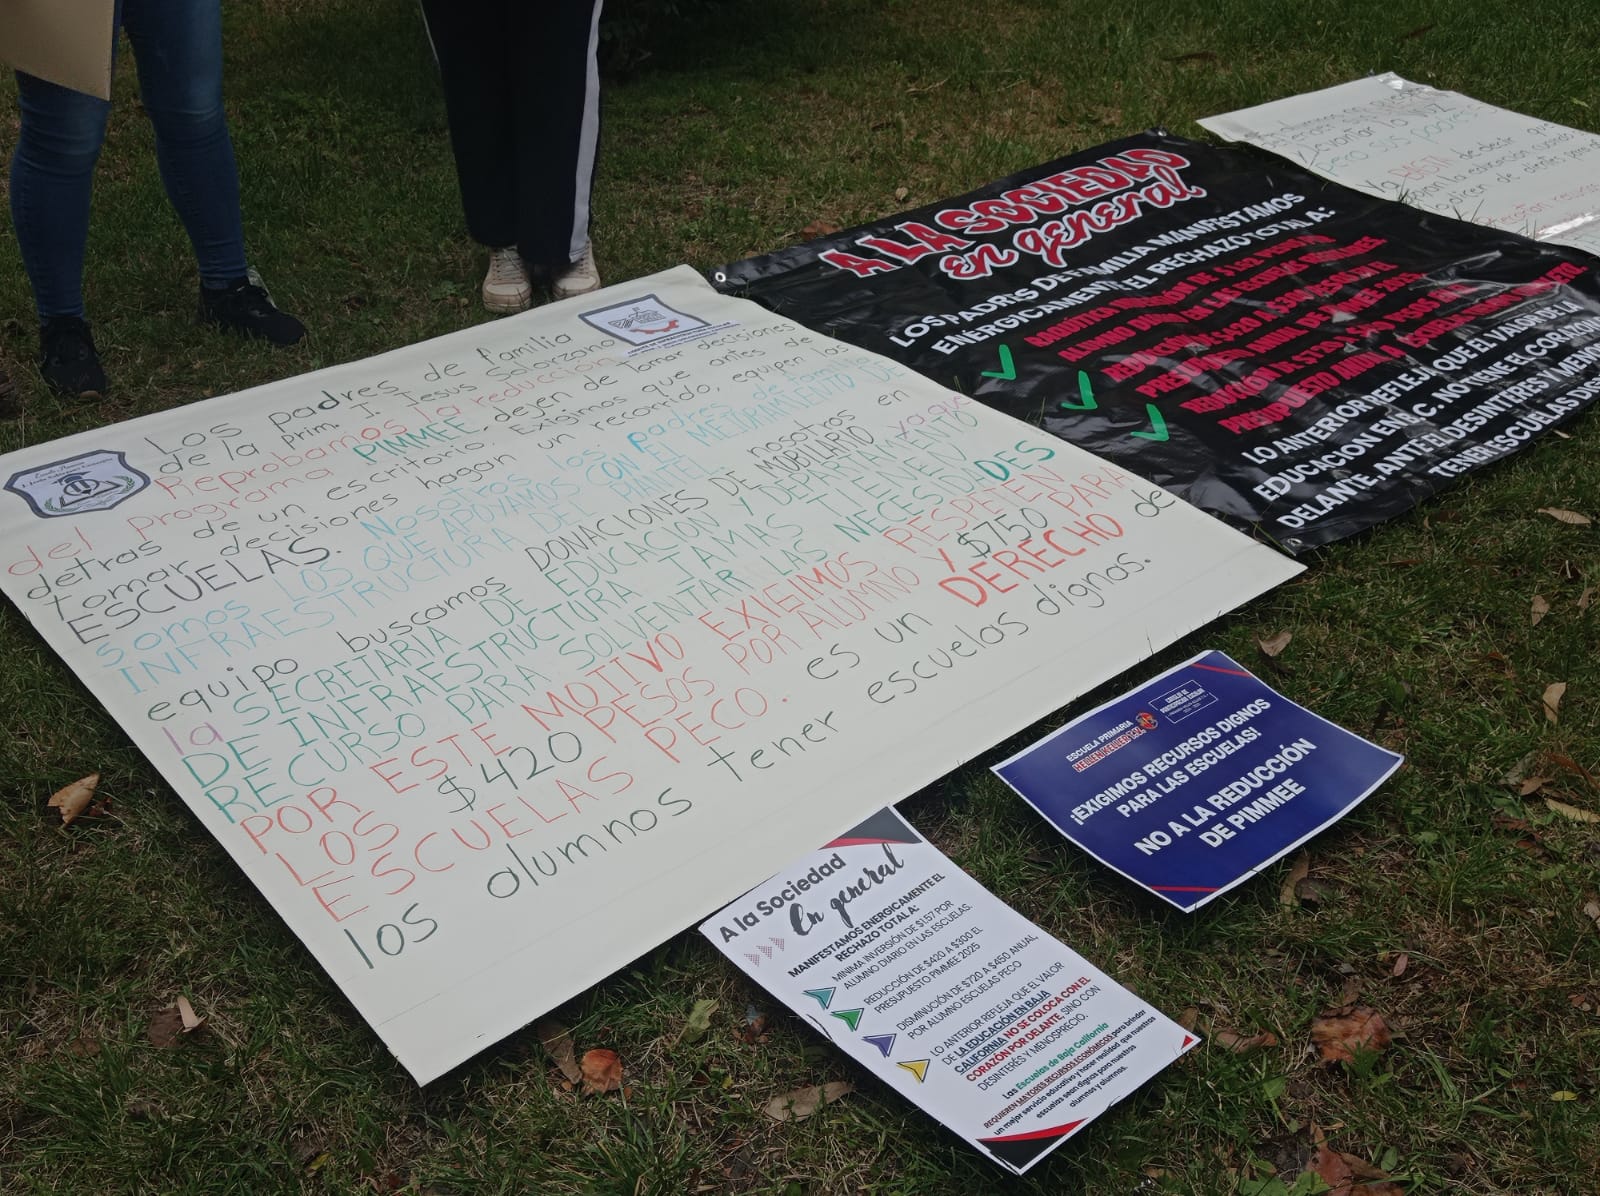 Los padres de familia
de la Prim. J. Jesus Solorzano
Reprobamos la reducción
del programa PIMMEE, dejen de tomar decisiones
detras de un escritorio. Exigimos que antes de
tomar decisiones hagan un recorrido, equipen las
ESCUELAS. Nosotros los padres de familia
somos LOS QUE APOYAMOS CON EL MEJORAMIENTO DE
INFRAESTRUCTURA DEL PLANTEL. nosotros en
equipo buscamos DONACIONES DE MOBILIARIO, ya que
la SECRETARIA DE EDUCACION Y DEPARTAMENTO
DE INFRAESTRUCTURA JAMAS TIENEN
RECURSO PARA SOLVENTAR LAS NECESIDADES
POR ESTE MOTIVO EXIGIMOS RESPETEN
LOS $420 PESOS POR ALUMNO Y $750 PARA
ESCUELAS PECO. es un DERECHO de
los alumnos tener escuelas dignas.
A LA SOCIEDAD
en general
LOS PADRES DE FAMILIA MANIFESTAMOS
ENÉRGICAMENTE EL RECHAZO TOTAL A:
LO ANTERIOR REFLEJA QUE EL VALOR DE LA
EDUCACION EN B.C. NO TIENE EL CORAZON
DELANTE, ANTE EL DESINTERES Y
TENER ESCUELAS
levantar la voz
pero sus padres
Ya BASTA de decir que
ESCUELA PRIMARIA
HELLEN KELLER T.V.
CONSEJO DE
PARTICIPACIÓN ESCOLAR
¡EXIGIMOS RECURSOS DIGNOS
PARA LAS ESCUELAS!
NO A LA REDUCCIÓN
DE PIMMEE
A la Sociedad
En general
MANIFESTAMOS ENERGICAMENTE EL
RECHAZO TOTAL A:
MINIMA INVERSIÓN DE $1.57 POR
ALUMNO DIARIO EN LAS ESCUELAS.
REDUCCIÓN DE $420 A $300 EL
PRESUPUESTO PIMMEE 2025
DISMINUCIÓN DE $720 A $450 ANUAL,
POR ALUMNO ESCUELAS PECO
LO ANTERIOR REFLEJA QUE EL VALOR
DE LA EDUCACIÓN EN BAJA
CALIFORNIA NO SE COLOCA CON EL
CORAZÓN POR DELANTE, SINO CON
DESINTERÉS Y MENOSPRECIO.
Las Escuelas de Baja California
REQUIEREN MAYORES RECURSOS ECONÓMICOS para brindar
un mejor servicio educativo y hacer realidad que nuestras
escuelas sean dignas para nuestras
alumnas y alumnos.